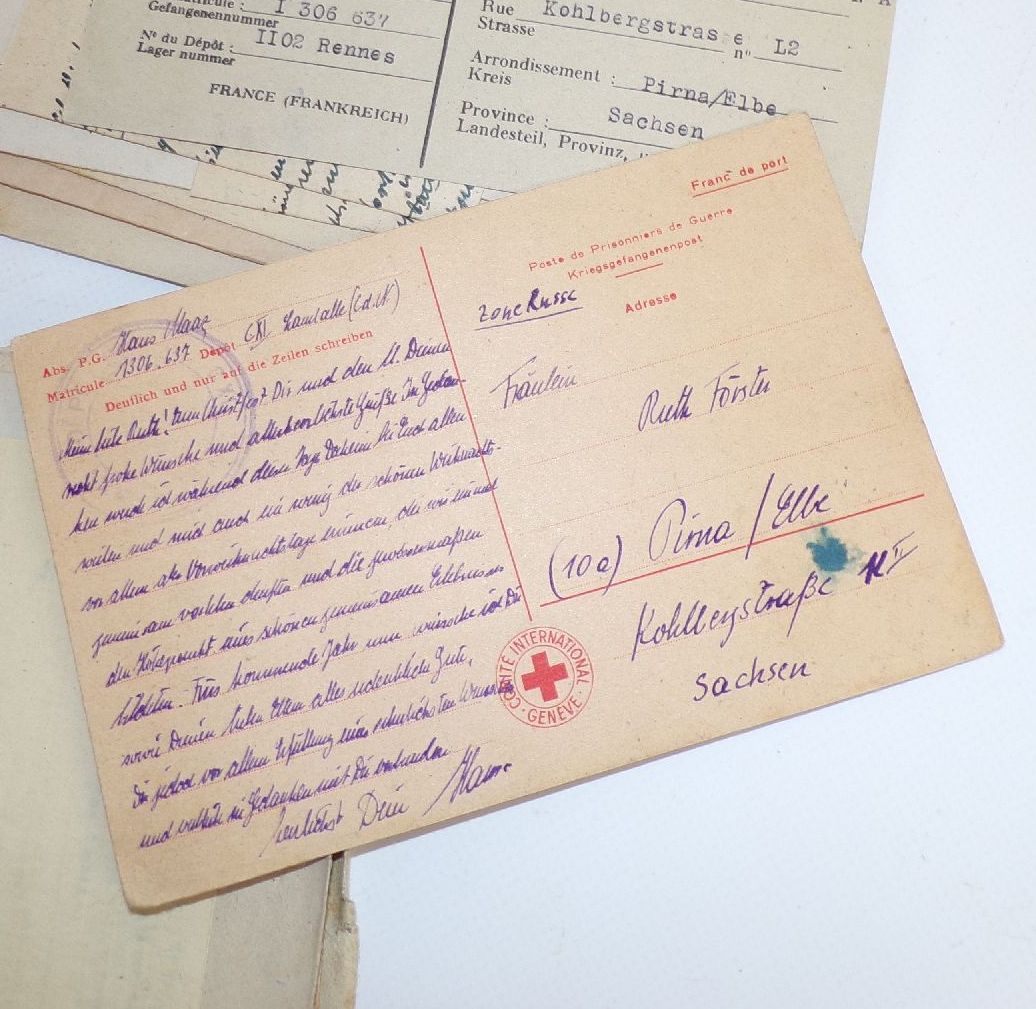 Matricule : I 306 637
Gefangenennummer
N° du Dépôt : II02 Rennes
Lager nummer
FRANCE (FRANKREICH)
Rue Kohlbergstrasse n° L2
Strasse
Arrondissement : Pirna/Elbe
Kreis
Province : Sachsen
Landesteil, Provinz,
Abs. P.G. Hans Maaz
Matricule 1306.637 Dépôt CXI
Deutlich und nur auf die Zeilen schreiben
Mein liebe Ruth! Zum Christfest Dir und den Deinen
recht frohe Wünsche und allerherzlichste Grüße. In Gedan-
ken werde ich während dieser Tage Daheim bei Euch allen
weilen und mich auch ein wenig der schönen Weihnachts-
vor allem aber Vorweihnachtstage erinnern, die wir einmal
gemeinsam verleben durften und die gewissermaßen
den Höhepunkt eines schönen gemeinsamen Erlebnisses
bildeten. - Fürs kommende Jahr nun wünsche ich Dir
sowie Deinen lieben Eltern alles erdenklich Gute,
Dir jedoch vor allem Erfüllung eines sehnlichsten Wunsches
und verbleibe in Gedanken mit Dir verbunden
herzlichst Dein Hans
Franc de port
Poste de Prisonniers de Guerre
Kriegsgefangenenpost
Zone Russe
Adresse
Fräulein
Ruth Förster
(10a) Pirna / Elbe
Kohlbergstraße 12 II
Sachsen
COMITÉ INTERNATIONAL
GENÈVE